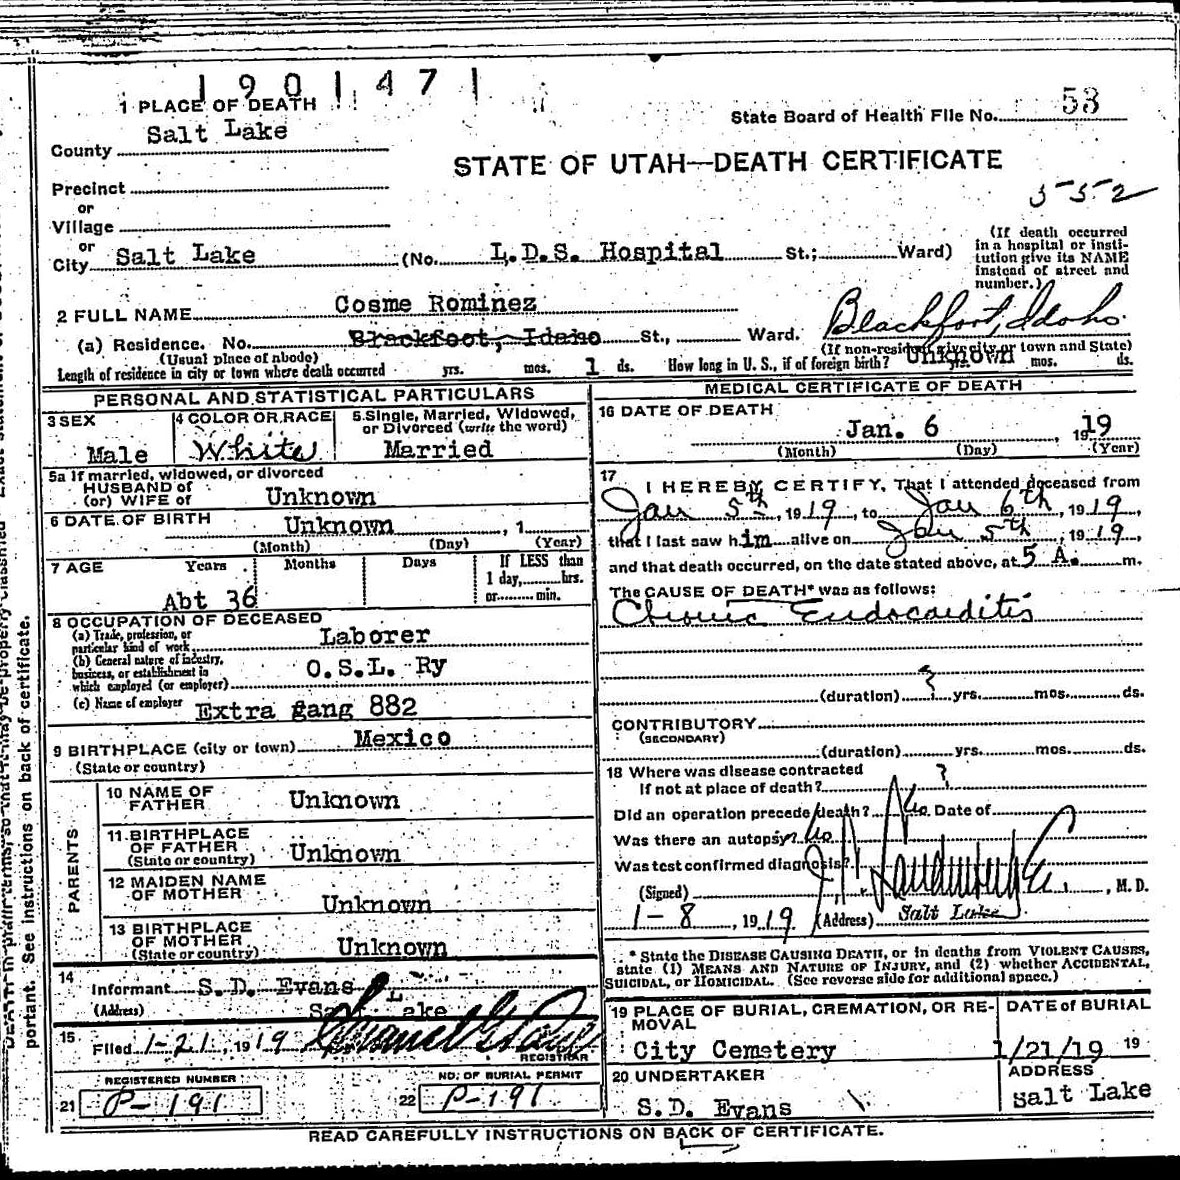 1 9 0 1 4 7 1
1 PLACE OF DEATH
State Board of Health File No. 53
County Salt Lake
STATE OF UTAH—DEATH CERTIFICATE
Precinct
552
or
Village
or
City Salt Lake (No. L.D.S. Hospital St.; Ward)
(If death occurred
in a hospital or insti-
tution give its NAME
instead of street and
number.)
2 FULL NAME Cosme Rominez
(a) Residence. No. Brackfoot, Idaho St., Ward. Blackfoot, Idaho.
(Usual place of abode) (If non-resident give city or town and State)
Length of residence in city or town where death occurred yrs. mos. 1 ds. How long in U. S., if of foreign birth? Unknown yrs. mos. ds.
PERSONAL AND STATISTICAL PARTICULARS
3 SEX Male
4 COLOR OR RACE White
5 Single, Married, Widowed,
or Divorced (write the word)
Married
5a If married, widowed, or divorced
HUSBAND of
(or) WIFE of Unknown
6 DATE OF BIRTH Unknown , 1
(Month) (Day) (Year)
7 AGE Years Months Days If LESS than
1 day, hrs.
or min.
Abt 36
8 OCCUPATION OF DECEASED
(a) Trade, profession, or
particular kind of work Laborer
(b) General nature of industry,
business, or establishment in
which employed (or employer) O.S.L. Ry
(c) Name of employer Extra gang 882
9 BIRTHPLACE (city or town) Mexico
(State or country)
PARENTS
10 NAME OF
FATHER Unknown
11 BIRTHPLACE
OF FATHER
(State or country) Unknown
12 MAIDEN NAME
OF MOTHER Unknown
13 BIRTHPLACE
OF MOTHER
(State or country) Unknown
14
Informant S.D. Evans
(Address) Salt Lake
15
Filed 1-21, 1919
REGISTRAR
REGISTERED NUMBER
21 P-191
NO. OF BURIAL PERMIT
22 P-191
MEDICAL CERTIFICATE OF DEATH
16 DATE OF DEATH
Jan. 6 , 1919
(Month) (Day) (Year)
17
I HEREBY CERTIFY, That I attended deceased from
Jan 5th, 1919, to Jan 6th, 1919,
that I last saw him alive on Jan 5th, 1919,
and that death occurred, on the date stated above, at 5 A. m.
The CAUSE OF DEATH* was as follows:
Chronic Endocarditis
(duration) ? yrs. mos. ds.
CONTRIBUTORY
(SECONDARY)
(duration) yrs. mos. ds.
18 Where was disease contracted
If not at place of death? ?
Did an operation precede death? No Date of
Was there an autopsy? No
Was test confirmed diagnosis?
(Signed) , M. D.
1-8, 1919 (Address) Salt Lake
* State the DISEASE CAUSING DEATH, or in deaths from VIOLENT CAUSES,
state (1) MEANS AND NATURE OF INJURY, and (2) whether ACCIDENTAL,
SUICIDAL, or HOMICIDAL. (See reverse side for additional space.)
19 PLACE OF BURIAL, CREMATION, OR RE-
MOVAL
City Cemetery
DATE of BURIAL
1/21/19 19
20 UNDERTAKER
S.D. Evans
ADDRESS
Salt Lake
READ CAREFULLY INSTRUCTIONS ON BACK OF CERTIFICATE.
portant. See instructions on back of certificate.